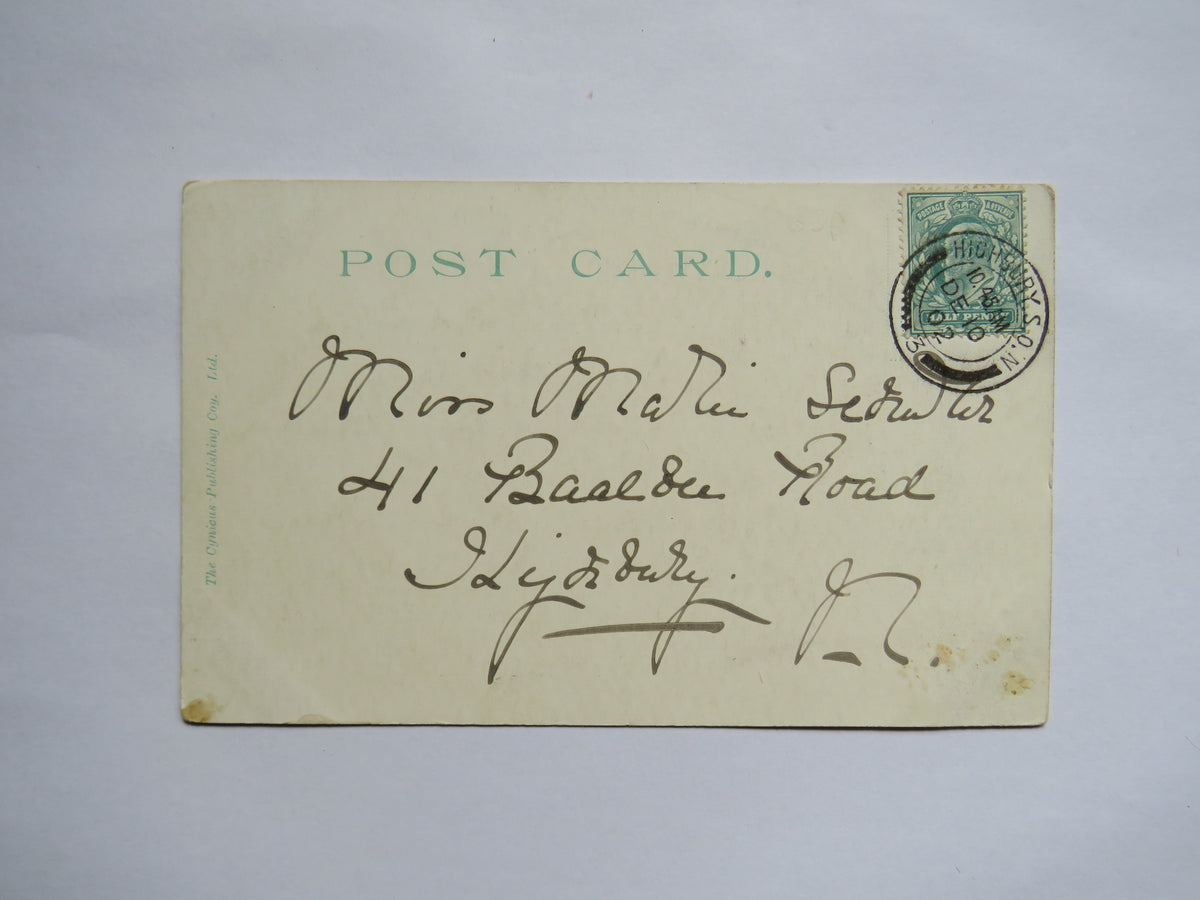 POST CARD.
POSTAGE & REVENUE
HALF PENNY
HIGHBURY. S.O. N.
10.45 AM
DE 10
02
3
Miss
41 Baalbec Road
Highbury.
N.
The Cynicus Publishing Coy. Ltd.